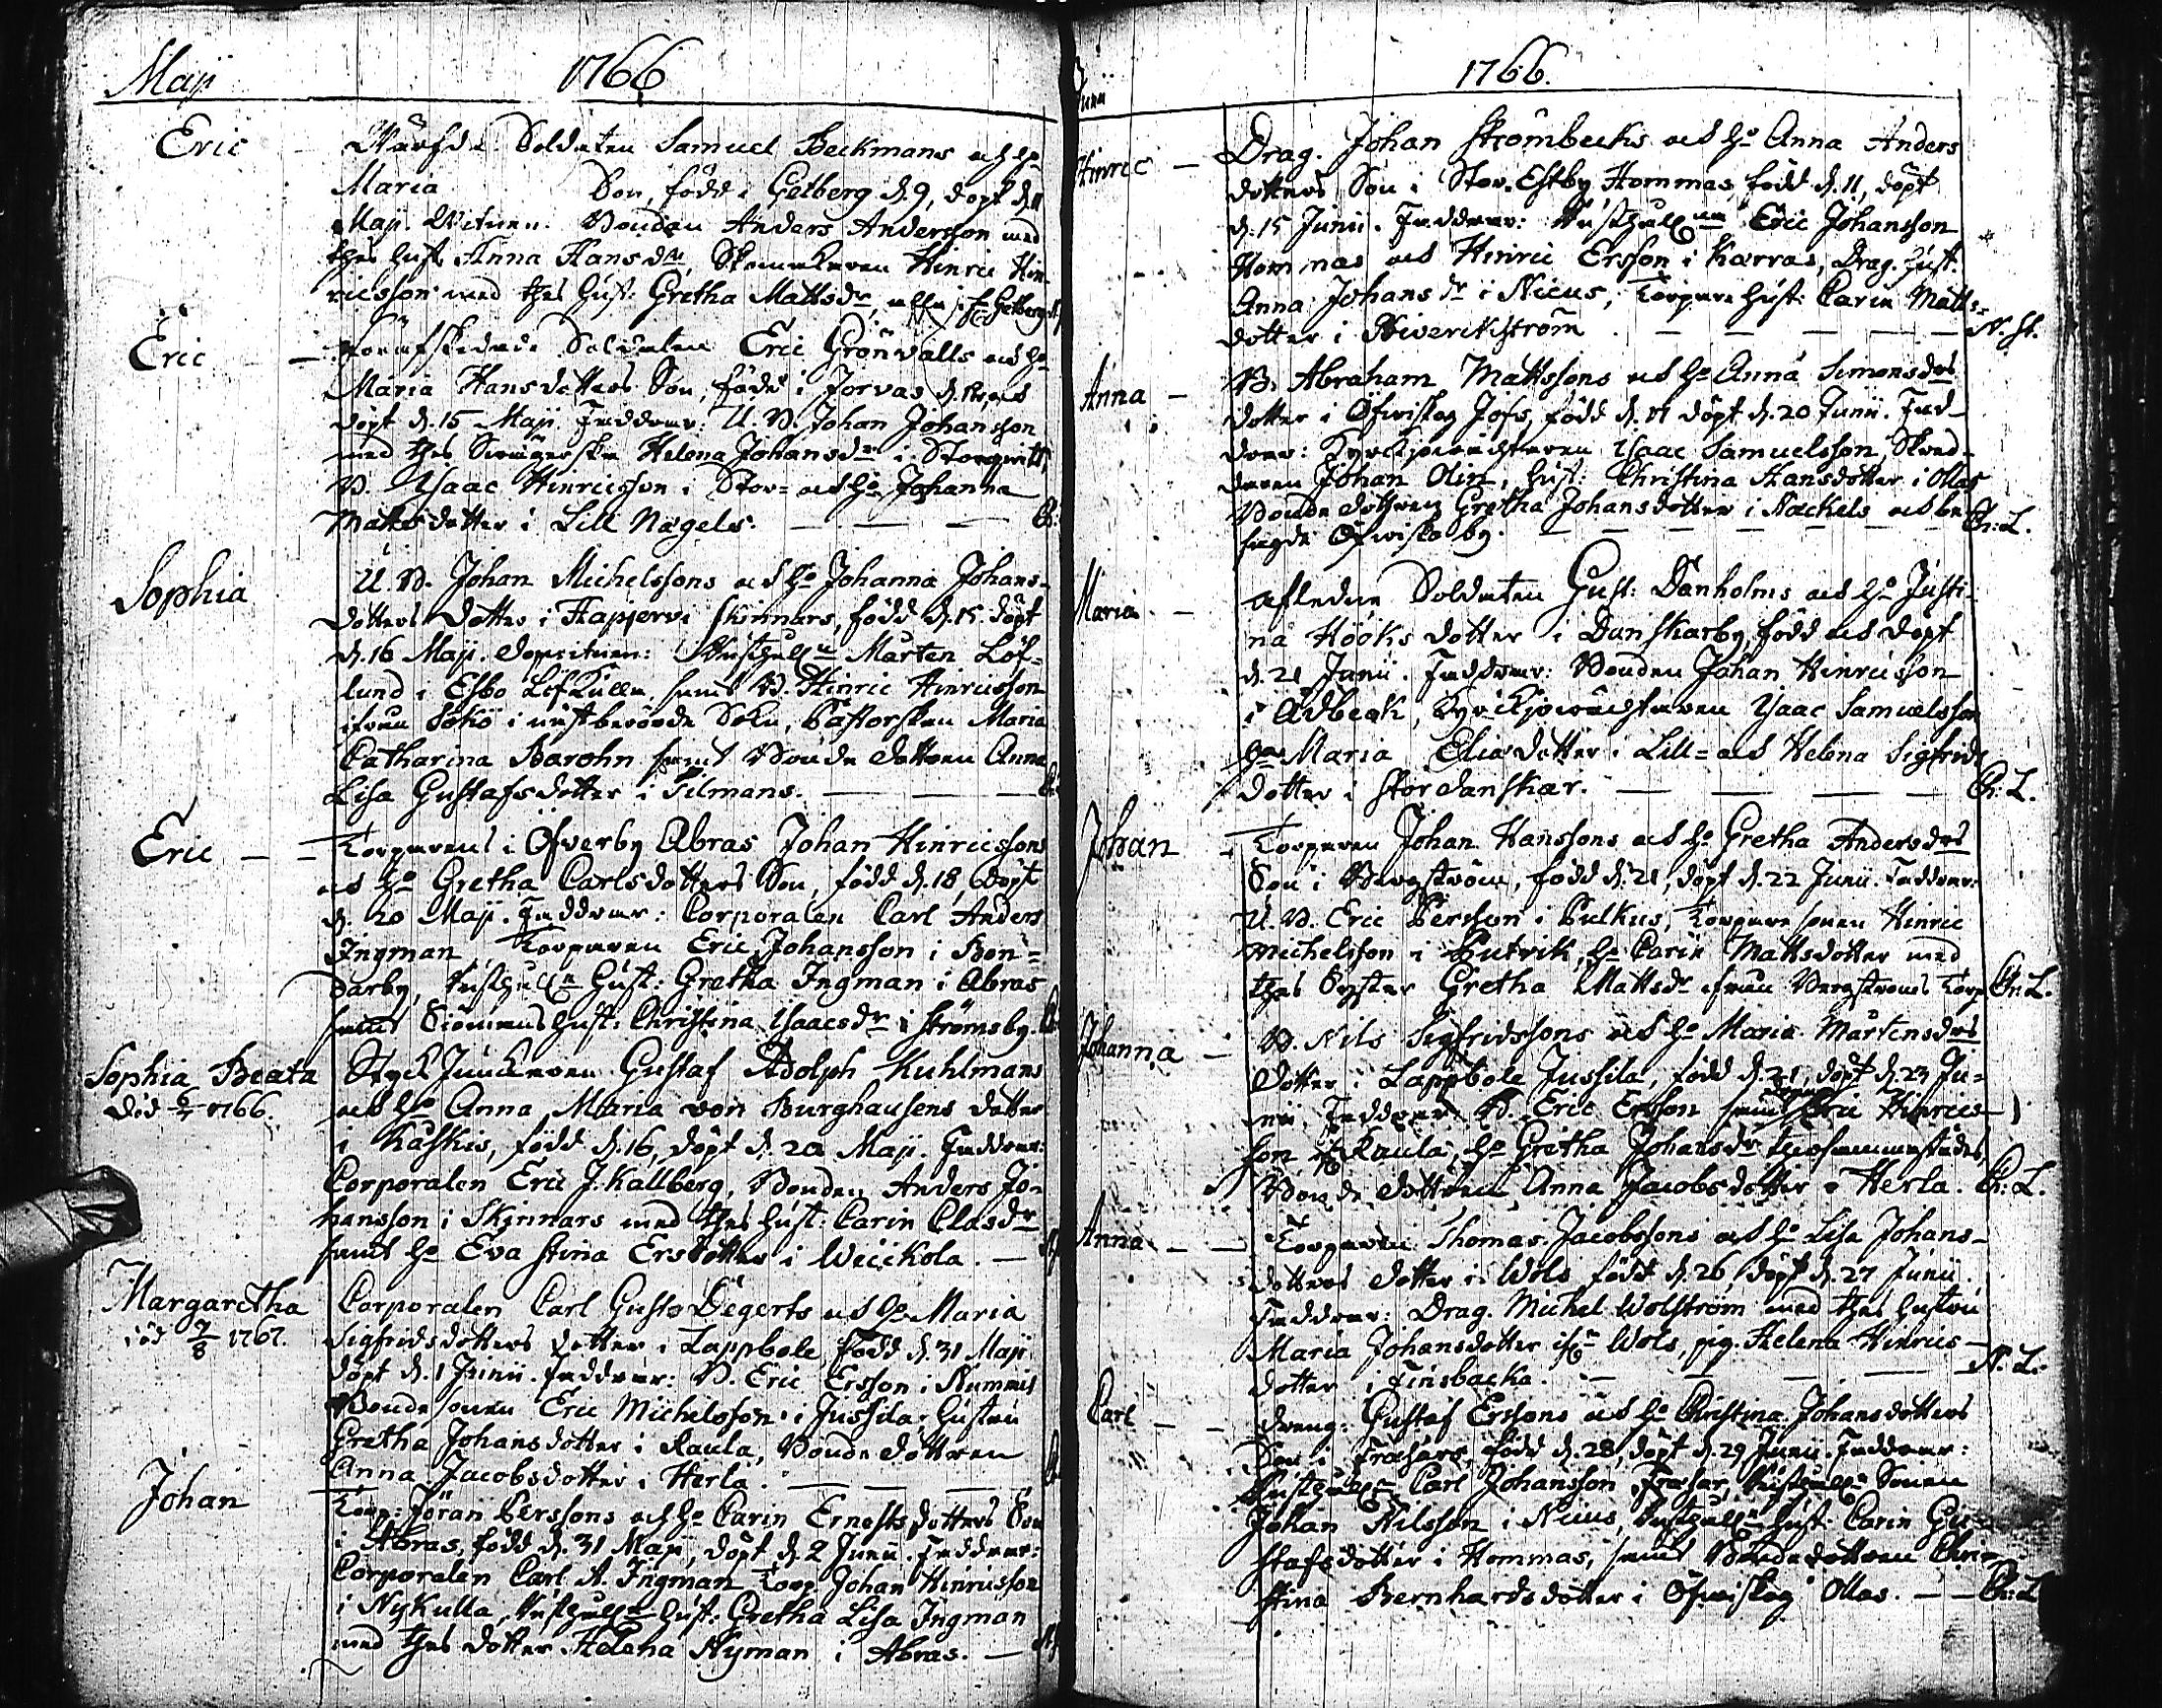 Maji 1766
Eric Wärfde Soldaten Samuel Beckmans och h:s
Maria Son, född i Getberg d. 9, döpt d. 11
Maji. Witnen. Bonden Anders Andersson med
thes hust. Anna Hansdr, Skomakaren Hinric Hin-
ricsson med thes hust: Gretha Mattsdr, alla ifr. Getberg
Eric – förafskedade Soldaten Eric Grönvalls och h:o
Maria Hansdotters Son, född i Jorvas och
döpt d. 15 Maji. Faddrar: U. B. Johan Johansson
med thes Swägerska Helena Johansdr i
B. Ysaac Hinricsson i Stor= och h:o Johanna
Mattsdotter i Lill Nägels.
Sophia U. B. Johan Michelssons och h:o Johanna Johans-
dotters dotter i Happjervi Skinnars, född d. 15. döpt
d. 16 Maji. Dopvitnen: Mårten Löf-
lund i Esbo Löfkulla, samt B. Hinric Hinricsson
ifrån Sökö i nästberörde Sokn, Pastorskan Maria
Catharina Barohn samt Bonde dottren Anna
Lisa Gustafsdotter i Tilmans.
Eric – – Torparens i Öfverby Abras Johan Hinricssons
och h:o Gretha Carlsdotters Son, född d. 18, döpt
d. 20 Maji. Faddrar: Corporalen Carl Anders
Ingman, Torparen Eric Johansson i Bon-
darby, hust: Gretha Ingman i Abras
samt hust: Christina Ysaacsdr i Strömsby.
Sophia Beata Styck Junkaren Gustaf Adolph Kuhlmans
död 1766. och h:o Anna Maria von Burghausens dotter
i Kaskis, född d. 16, döpt d. 20 Maji. Faddrar:
Corporalen Eric J. Kallberg, Bonden Anders Jo-
hansson i Skinnars med thes hust: Carin Clasdr
samt h:o Eva Stina Ersdotter i Weickola. –
Margaretha Corporalen Carl Gust: Degerts och h:o Maria
död 7/8 1767. Sigfridsdotters dotter i Lappbole, född d. 31 Maji
döpt d. 1 Junii. Faddrar: B. Eric Ersson i Rummis
Bondesonen Eric Michelsson i Jussila, hustru
Gretha Johansdotter i Raula, Bonde dottren
Anna Jacobsdotter i Herla.
Johan Torp: Jöran Perssons och h:o Carin Ernstsdotters Son
i Abras, född d. 31 Maji, döpt d. 2 Junii. Faddrar:
Corporalen Carl A. Ingman, Torp. Johan Hinricsson
i Nykulla, hust: Gretha Lisa Ingman
med thes dotter Helena Nyman i Abras. –
Junii 1766.
Hinric – Drag. Johan Strömbecks och h:o Anna Anders
dotters Son i Stor-Estby Hommas, född d. 11, döpt
d. 15 Junii. Faddrar: Eric Johansson
Hommas och Hinric Ersson i Karras, Drag. hust.
Anna Johansdr i Nieus, Torpare hust: Carin Matts-
dotter i Siverikström – – – N. St.
Anna – B. Abraham Mattssons och h:o Anna Simonsdrs
dotter i Öfwiskog Jofs, född d. 17 döpt d. 20 Junii. Fad-
drar: Kyrckjowächtaren Ysaac Samuelsson, Skräd-
daren Johan Olin, hust: Christina Hansdotter i Ollas
Bonde dottren Gretha Johansdotter i Nackels och be-
sagde Öfwiska by. – – – Ch: L.
Maria – afledne Soldaten Gust: Danholms och h:o Justi-
na Hööks dotter i Danskarby, född och döpt
d. 21 Junii. Faddrar: Bonden Johan Hinricsson
i Ådbeck, Kyrckjowächtaren Ysaac Samuelsson
h:o Maria Eliædotter i Lill= och Helena Sigfrids
dotter i Stor danskar. – – – Ch: L.
Johan – Torparen Johan Hanssons och h:o Gretha Andersdrs
Son i Bergström, född d. 21, döpt d. 22 Junii. Faddrar:
U. B. Eric Persson i Pulkus, Torpare sonen Hinric
Michelsson i Butvik, h:o Carin Mattsdotter med
thes Syster Gretha Mattsdr ifrån Bergströms Torp Ch: L.
Johanna – B. Nils Sigfridssons och h:o Maria Mårtensdrs
dotter i Lappbole Jussila, född d. 21, döpt d. 23 Ju-
nii. Faddrar: B. Eric Ersson samt Eric Hinrics-
son ifr. Raula, h:o Gretha Johansdr thersammastädes,
Bonde dottren Anna Jacobsdotter i Herla. Ch: L.
Anna – – Torparen Thomas Jacobssons och h:o Lisa Johans-
dotters dotter i Wols född d. 26, döpt d. 27 Junii.
Faddrar: Drag. Michel Wolström med thes hustru
Maria Johansdotter ifrån Wols, pig. Helena Hinrics-
dotter i Finsbacka. – – – N. L.
Carl – – dräng: Gustaf Erssons och h:o Christina Johansdotters
Son i Fræsars, född d. 28, döpt d. 29 Junii. Faddrar:
Carl Johansson, Fræsar, Sonen
Johan Nilsson i Niius, hust: Carin Gu-
stafsdotter i Hommas, samt Bondedottren Chri-
stina Bernhardsdotter i Öfwiskog Ollas. – – Ch: L